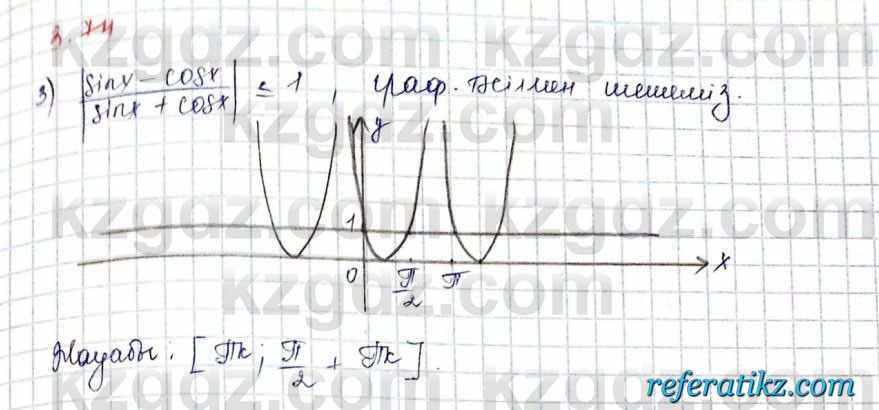 3.74
3) |sinx - cosx / sinx + cosx| ≤ 1, граф. тәсілмен шешеміз.
y
1
0 π/2 π x
Жауабы: [πk; π/2 + πk].
kzgdz.com
referatikz.com